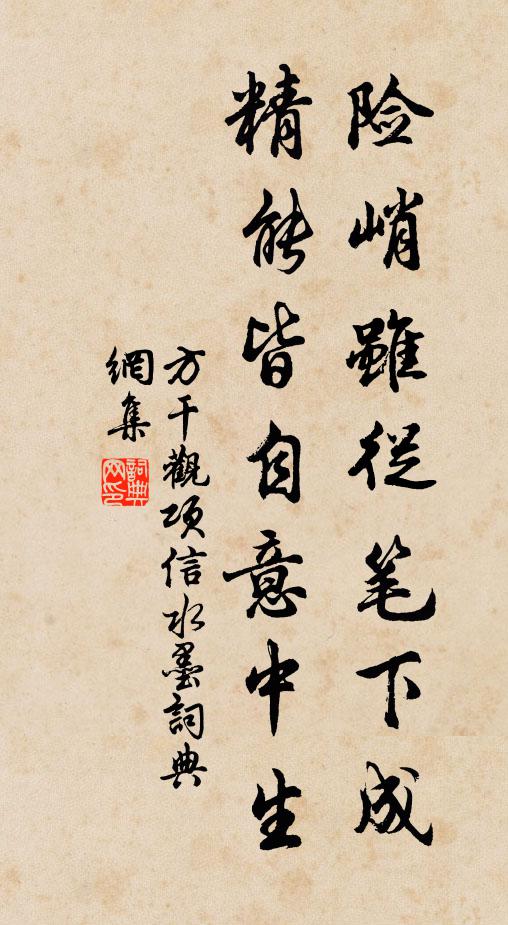 险峭雖從笔下成
精能皆自意中生
方干觀项信水墨詞典
網集
詞典网印